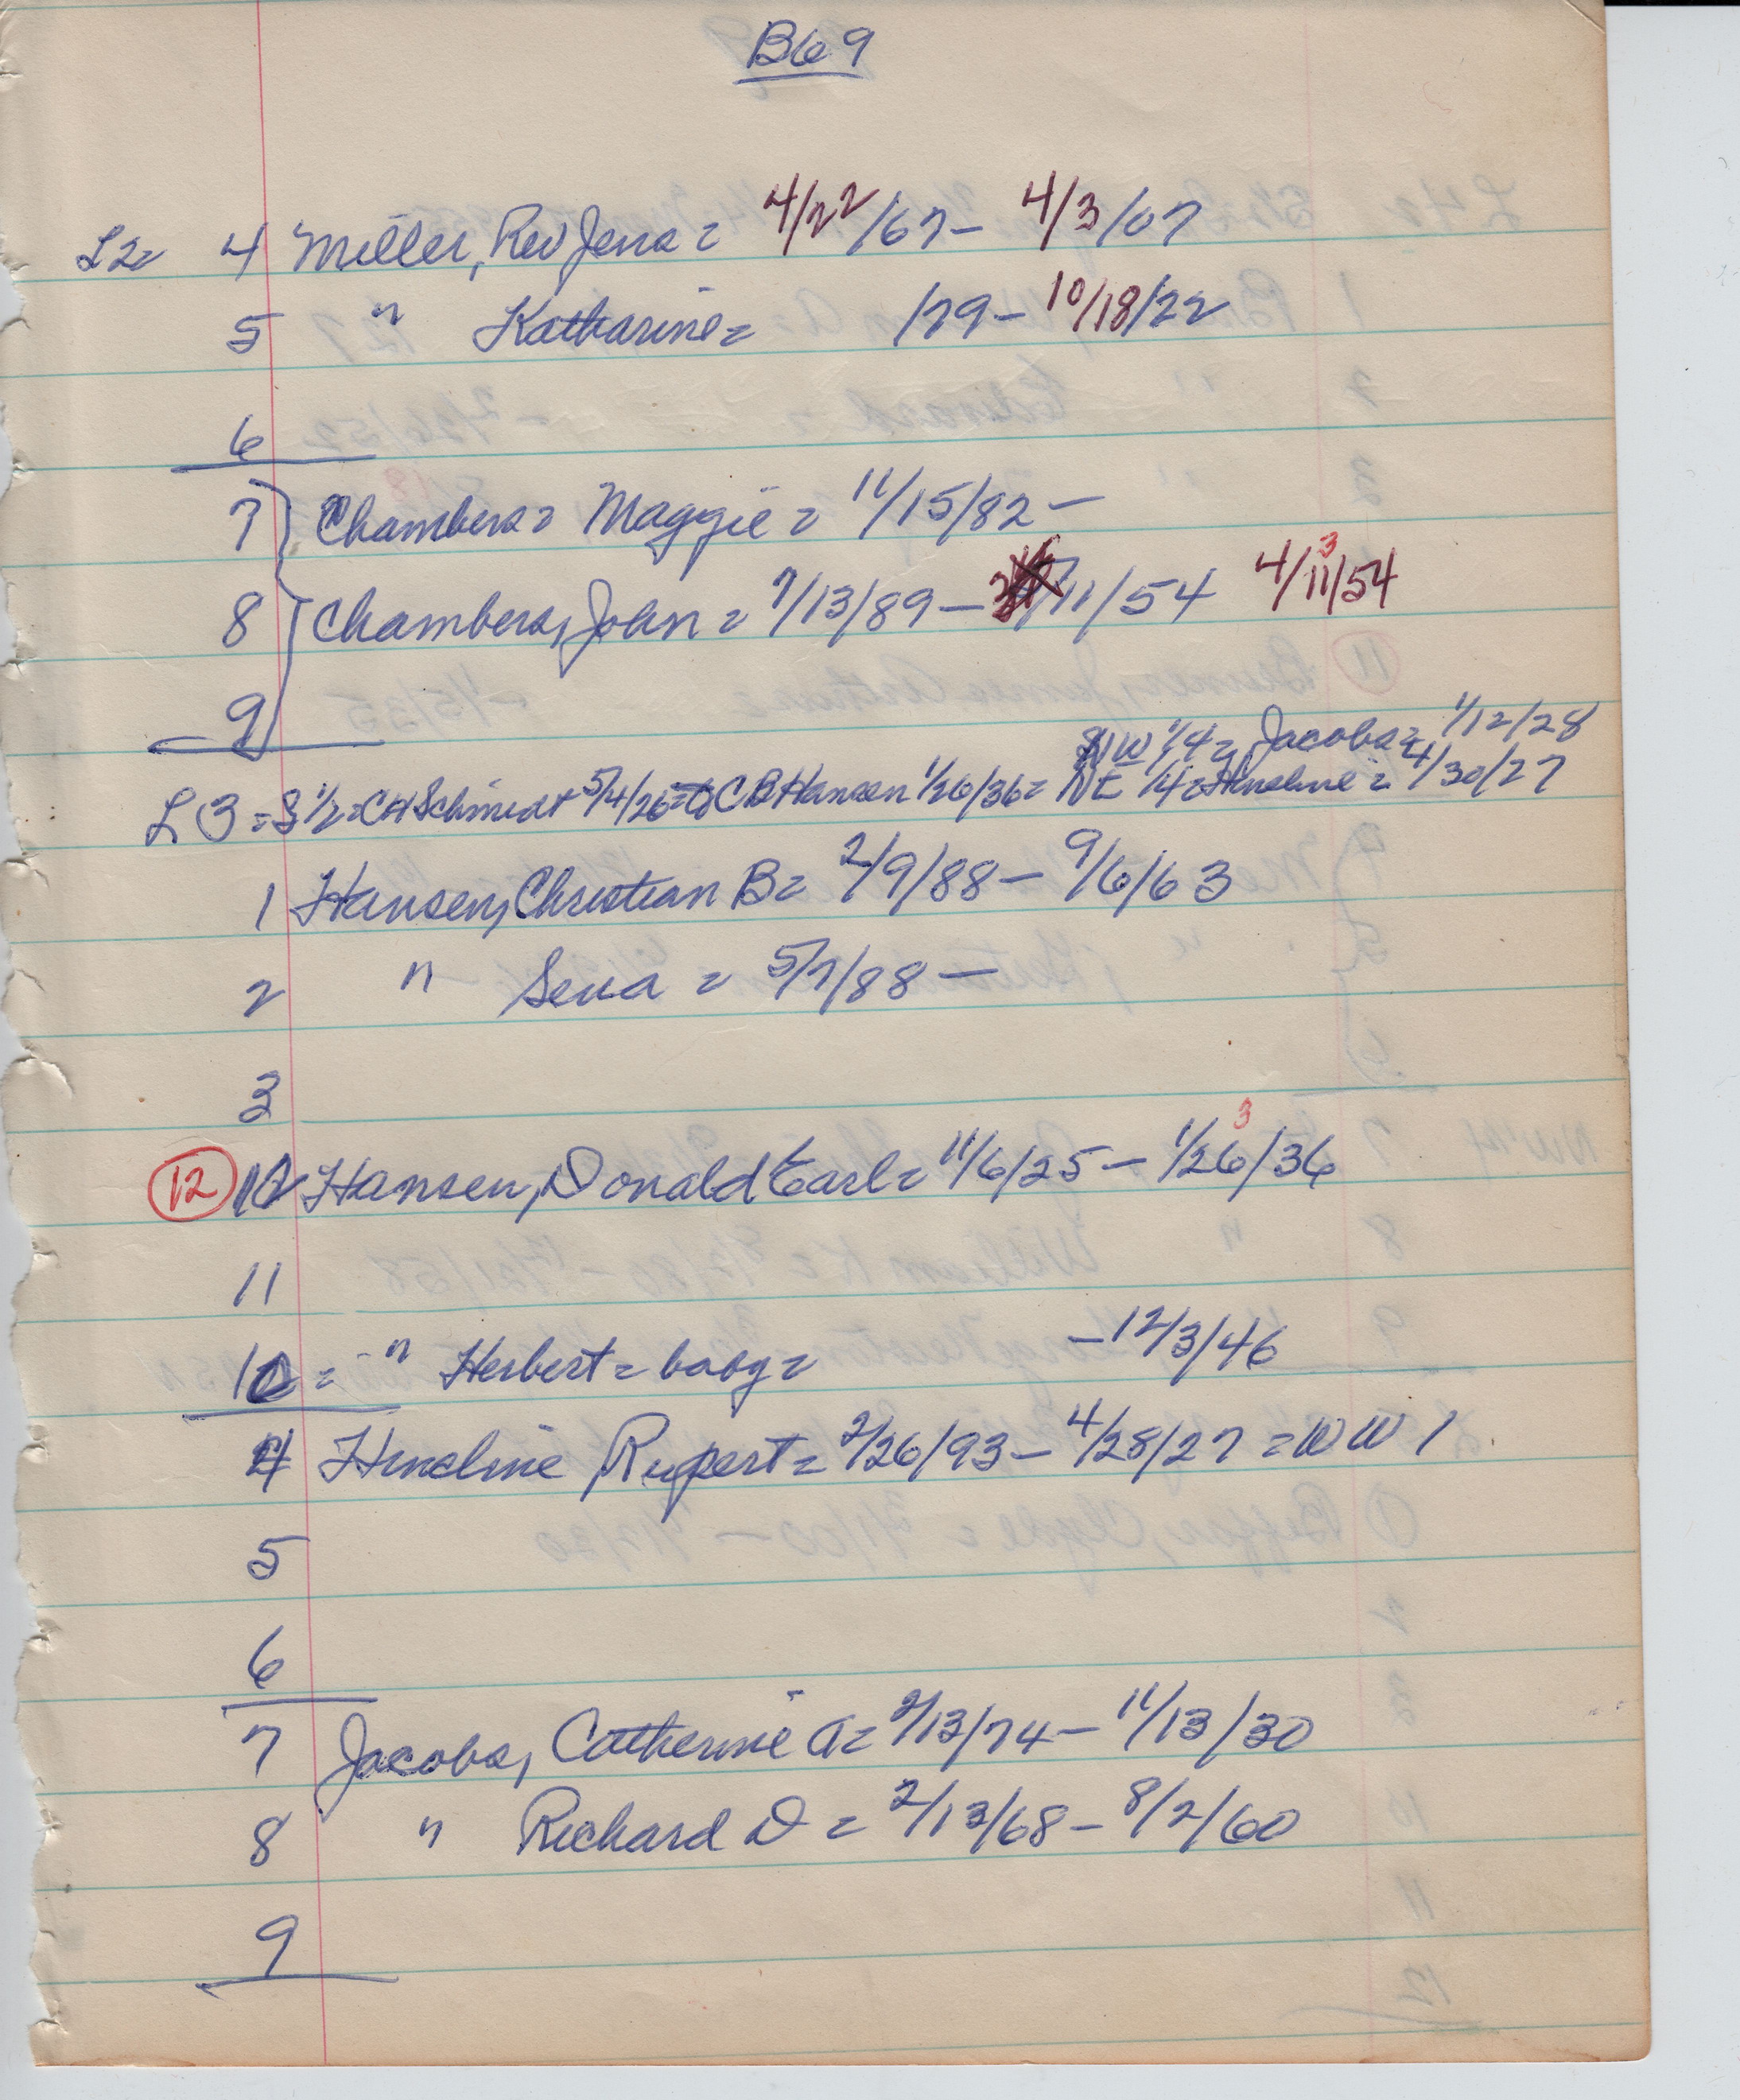 B69
L2= 4 Miller, Rev Jens = 4/22/67 - 4/3/07
5 " Katharine = /79 - 10/18/22
6
7 Chambers = Maggie = 11/15/82 -
8 Chambers, John = 7/13/89 - /11/54 4/11/54 3
9
NW 1/4 = Jacobs = 1/12/28
L3 = S 1/2 = C H Schmidt 5/4/26 = to C B Hansen 1/26/36 = NE 1/4 = Hineline = 4/30/27
1 Hansen, Christian B = 2/9/88 - 9/6/63
2 " Sena = 5/7/88 -
3
12 Hansen, Donald Earl = 11/6/25 - 1/26/36 3
11
10 = " Herbert = baby = - 12/3/46
4 Hineline, Rupert = 2/26/93 - 4/28/27 = WW 1
5
6
7 Jacobs, Catherine A = 2/13/74 - 11/13/30
8 " Richard D = 2/13/68 - 8/2/60
9